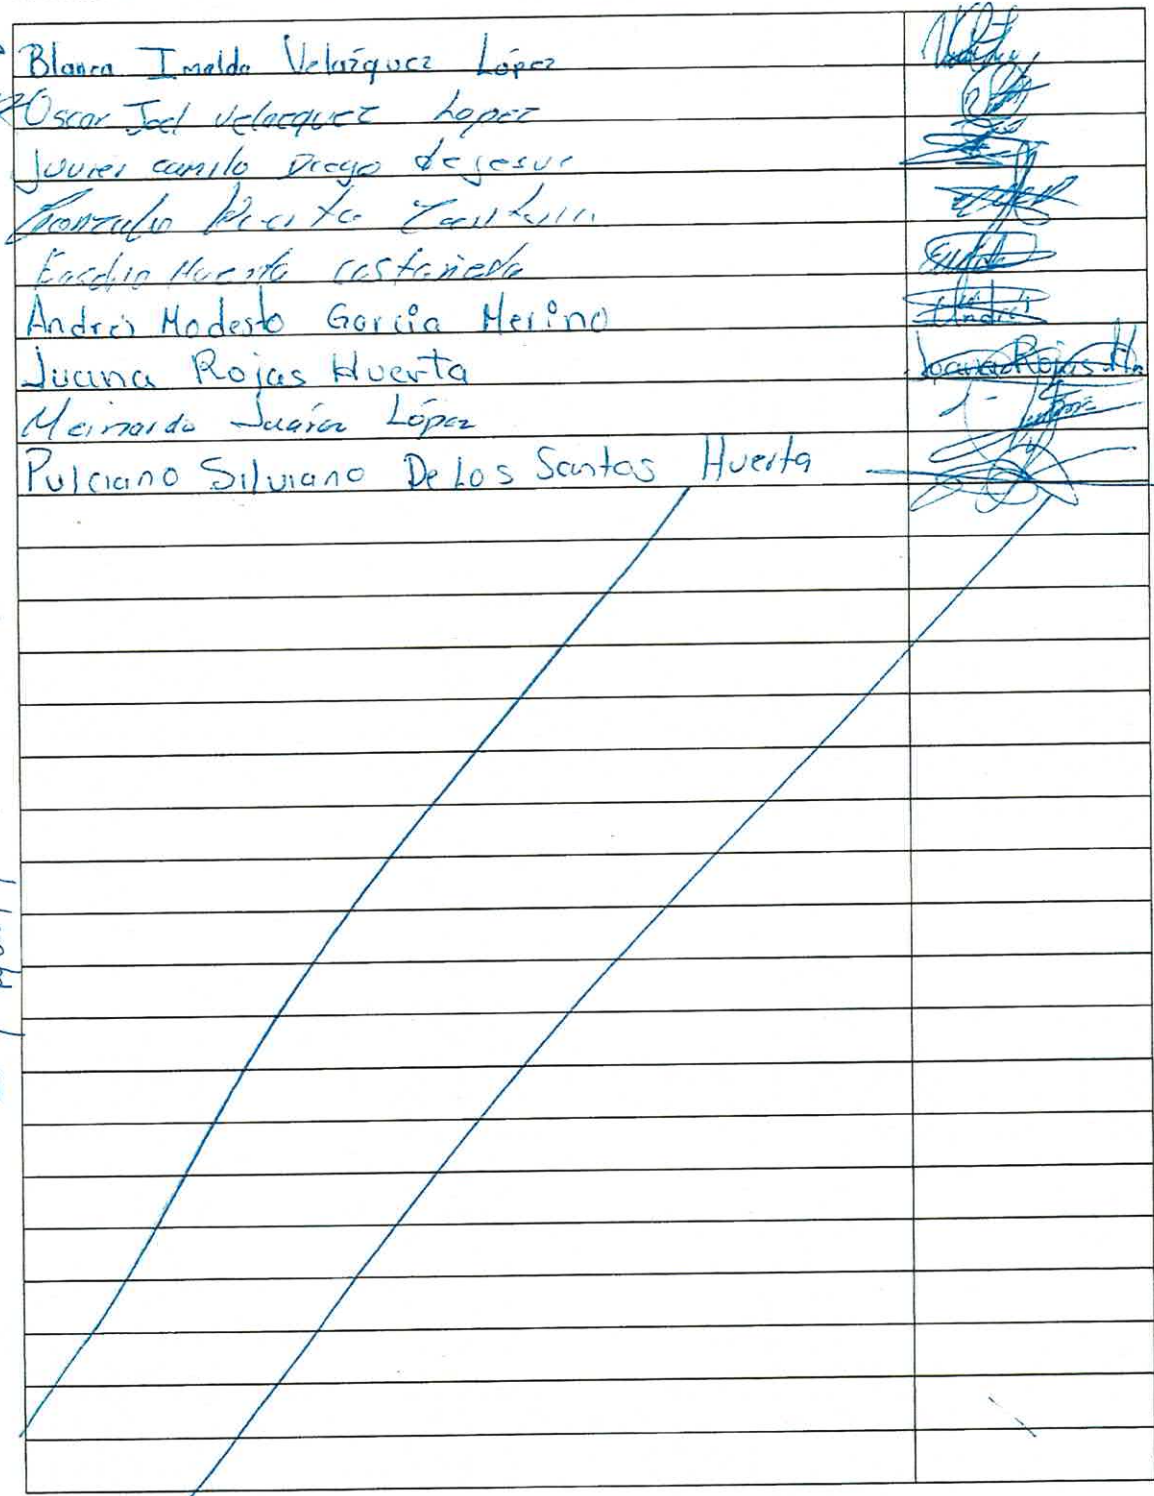 Blanca Imelda Velazquez López
Oscar Joel Velazquez Lopez
Javier camilo Diego de jesus
Gonzalo
Huerta castañeda
Andres Modesto Garcia Merino
Juana Rojas Huerta Juana Rojas H.
Meinardo Juárez López
Pulciano Silviano De Los Santos Huerta